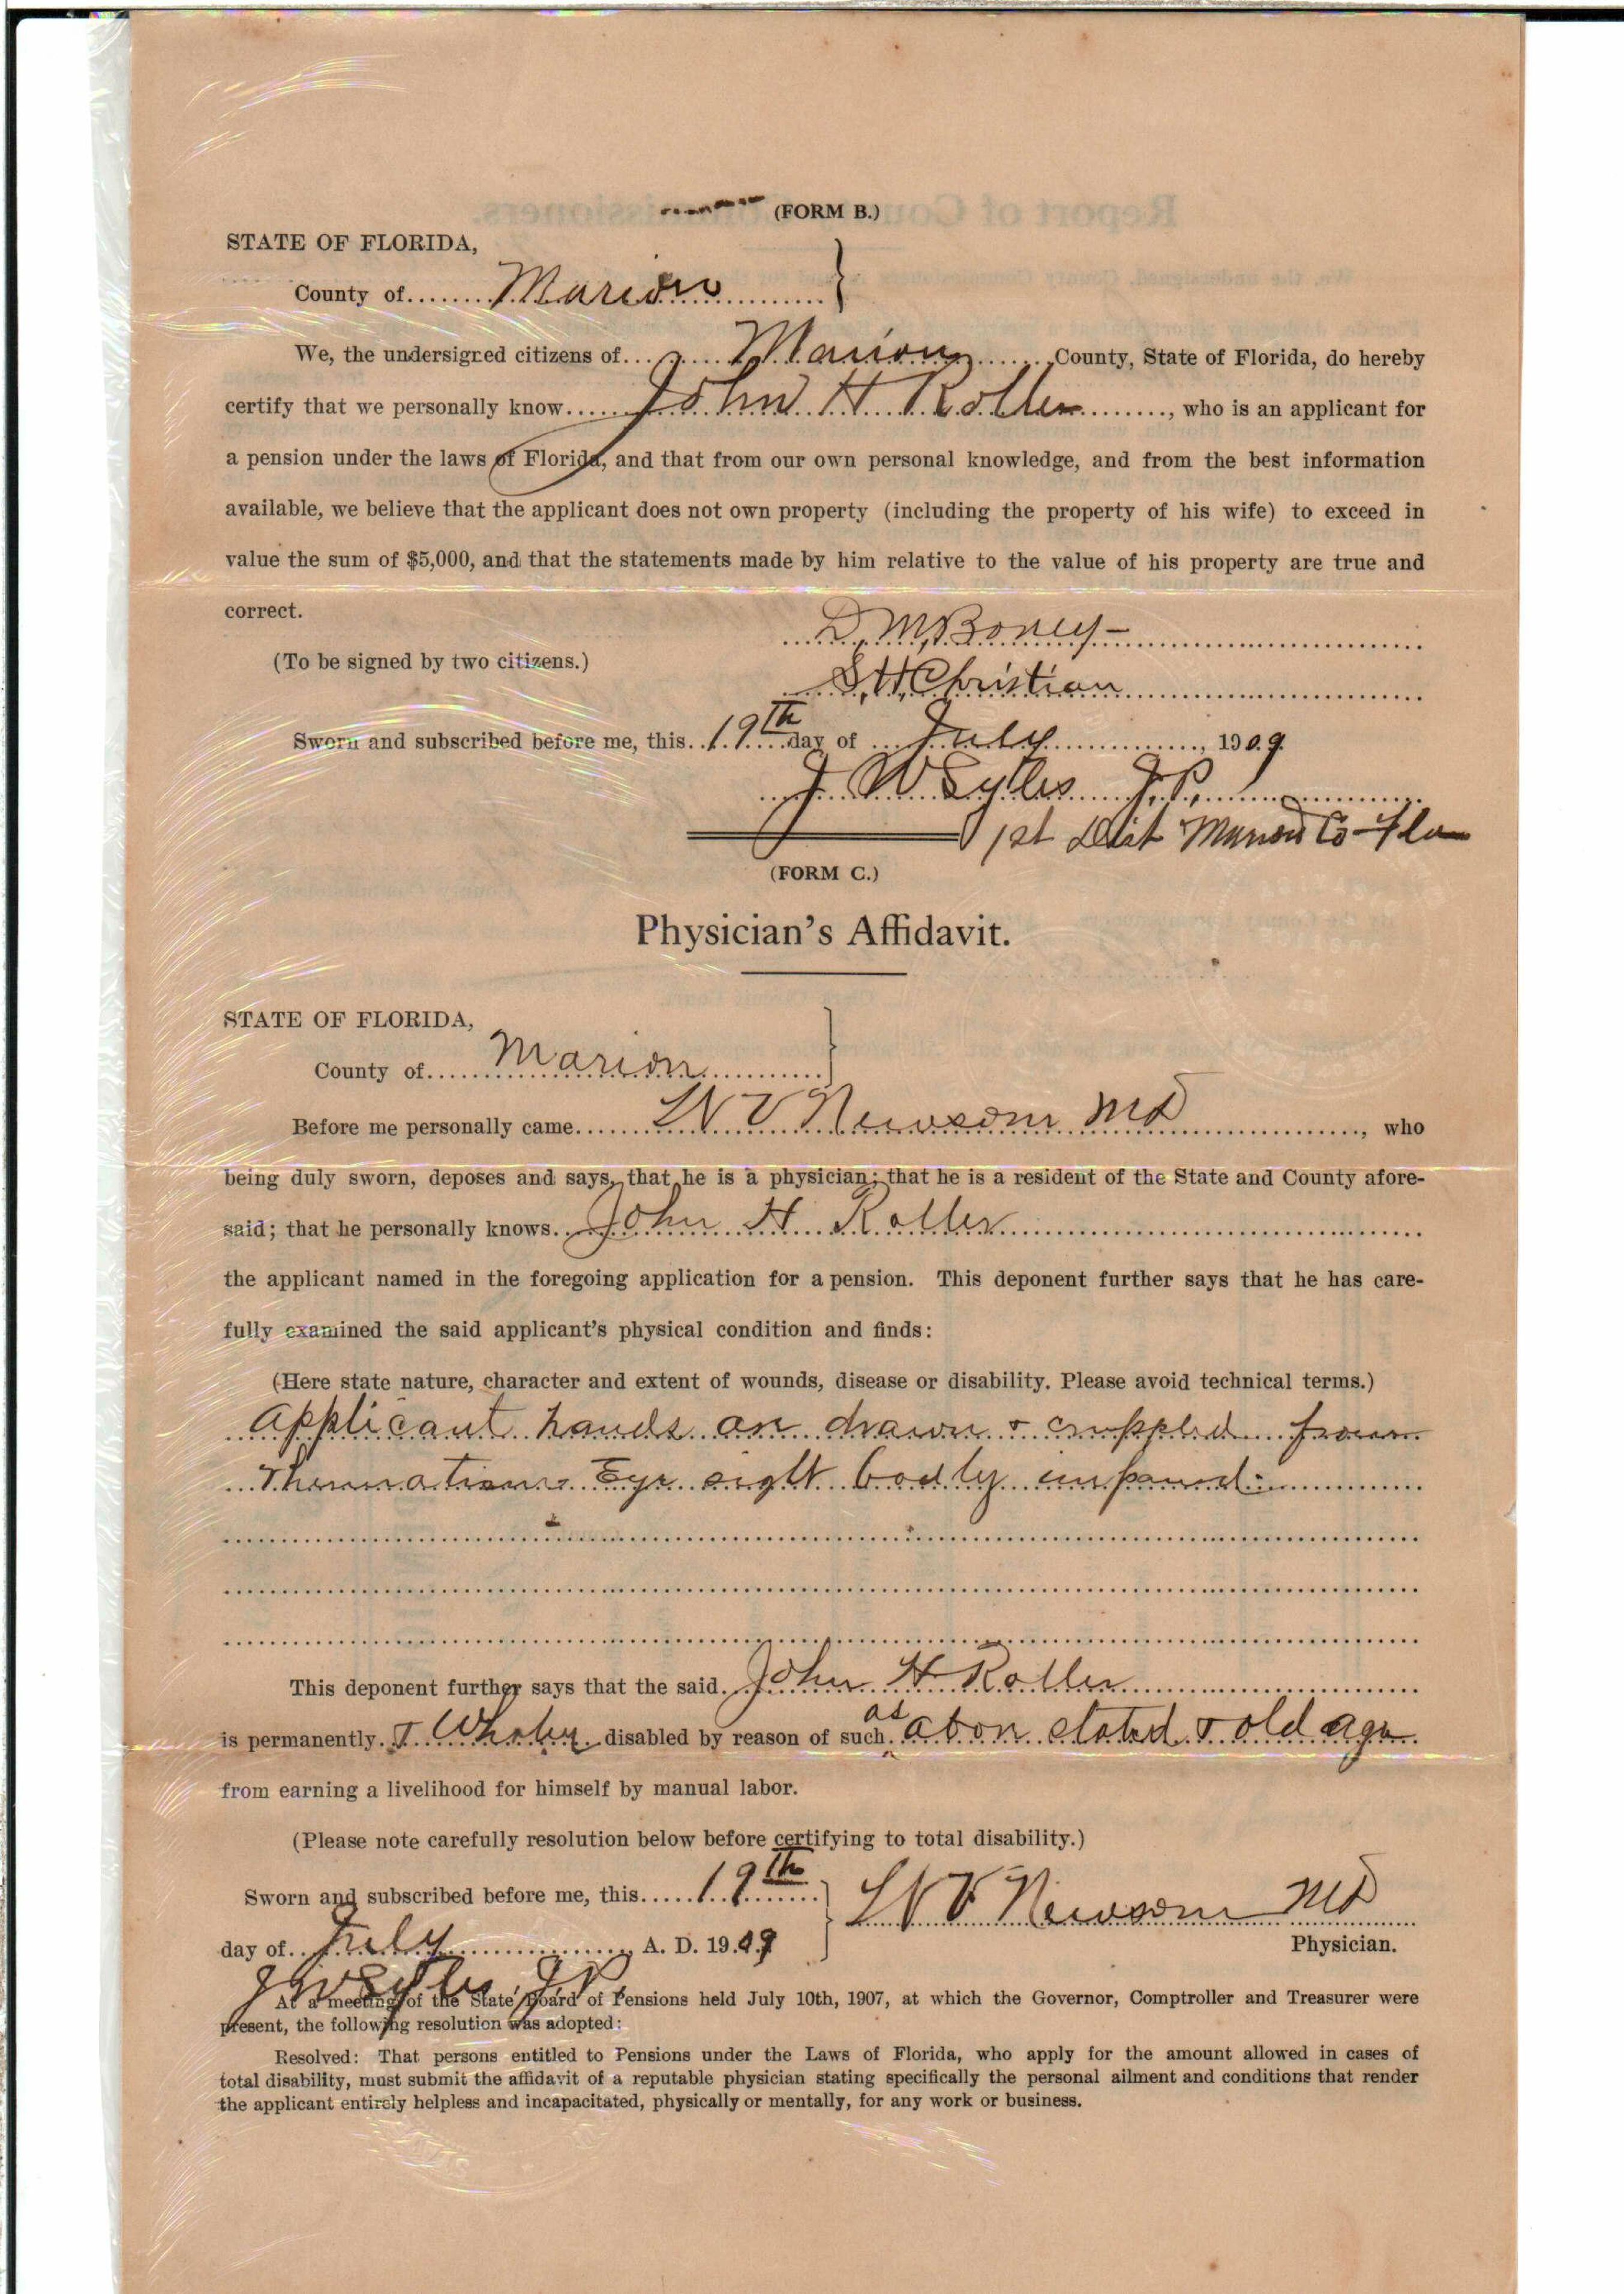 (FORM B.)
STATE OF FLORIDA,
County of Marion
We, the undersigned citizens of Marion County, State of Florida, do hereby
certify that we personally know John H Roller, who is an applicant for
a pension under the laws of Florida, and that from our own personal knowledge, and from the best information
available, we believe that the applicant does not own property (including the property of his wife) to exceed in
value the sum of $5,000, and that the statements made by him relative to the value of his property are true and
correct.
D. M. Boney
(To be signed by two citizens.)
S. H. Christian
Sworn and subscribed before me, this 19th day of July, 1909
J. W. Sylles J.P.
1st Dist Marion Co Fla
(FORM C.)
Physician's Affidavit.
STATE OF FLORIDA,
County of Marion
Before me personally came Newsom MD, who
being duly sworn, deposes and says, that he is a physician; that he is a resident of the State and County afore-
said; that he personally knows John H Roller
the applicant named in the foregoing application for a pension. This deponent further says that he has care-
fully examined the said applicant's physical condition and finds:
(Here state nature, character and extent of wounds, disease or disability. Please avoid technical terms.)
Applicant hands are drawn & crippled from
Rheumatism Eye sight badly impaired
This deponent further says that the said John H Roller
is permanently & Wholey disabled by reason of such as above stated & old age
from earning a livelihood for himself by manual labor.
(Please note carefully resolution below before certifying to total disability.)
Sworn and subscribed before me, this 19th
Newsom MD
day of July A. D. 1909
Physician.
J W Sylles J.P.
At a meeting of the State Board of Pensions held July 10th, 1907, at which the Governor, Comptroller and Treasurer were
present, the following resolution was adopted:
Resolved: That persons entitled to Pensions under the Laws of Florida, who apply for the amount allowed in cases of
total disability, must submit the affidavit of a reputable physician stating specifically the personal ailment and conditions that render
the applicant entirely helpless and incapacitated, physically or mentally, for any work or business.